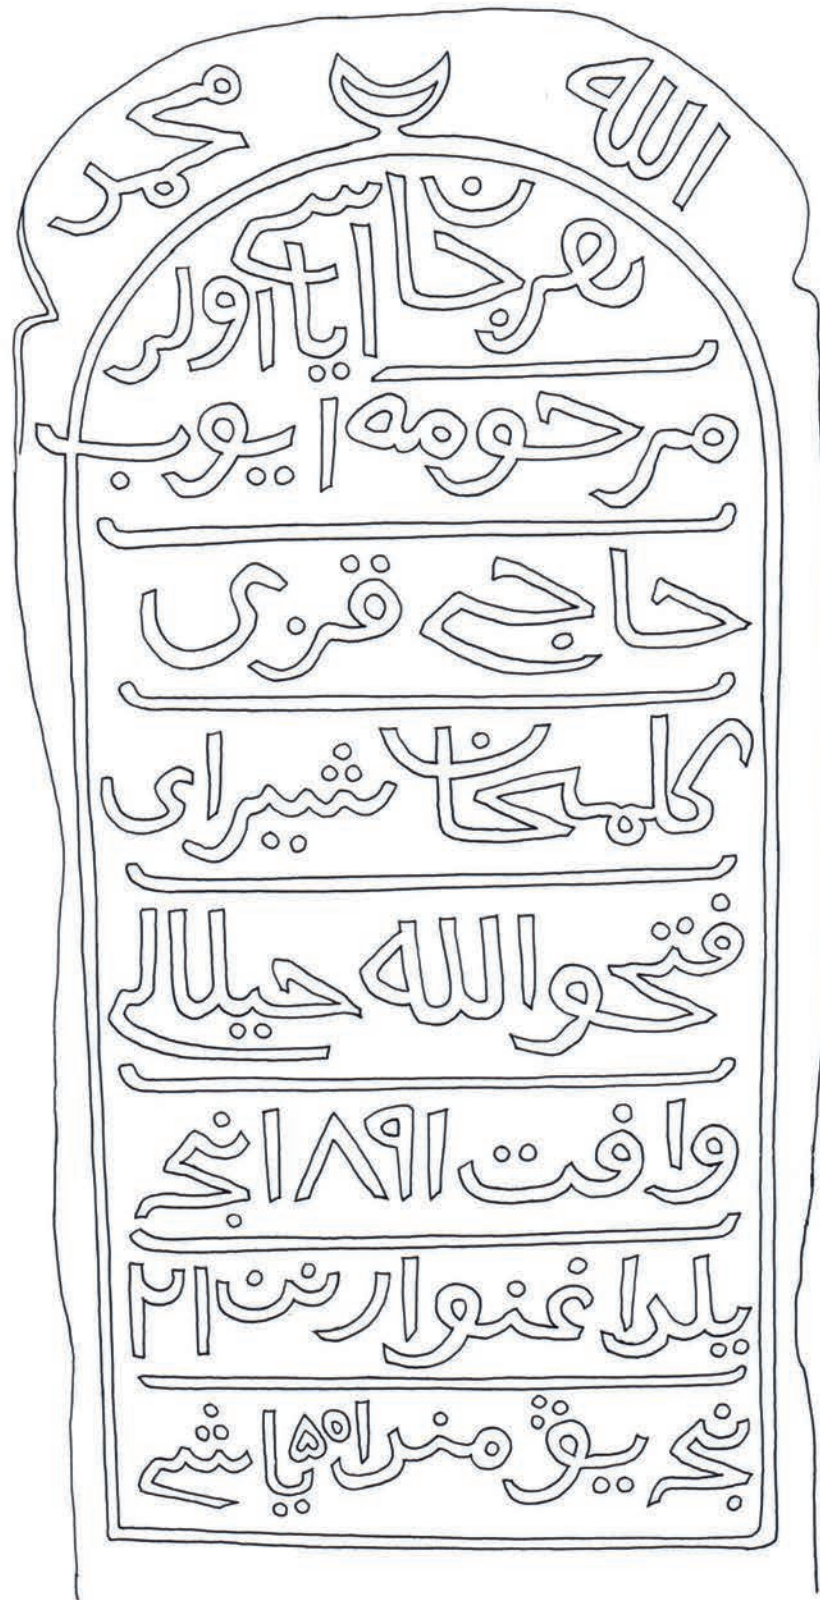 الله محمد
هرجان اياسے اولر
مرحومه ايوب
حاجے قزى
كلمخان شيراى
فتحوالله حيلالے
وافت ١٨٩١ نجے
يلدا غنوارنن ٢١
نجے يڨ مندا ۵۵ ياشے